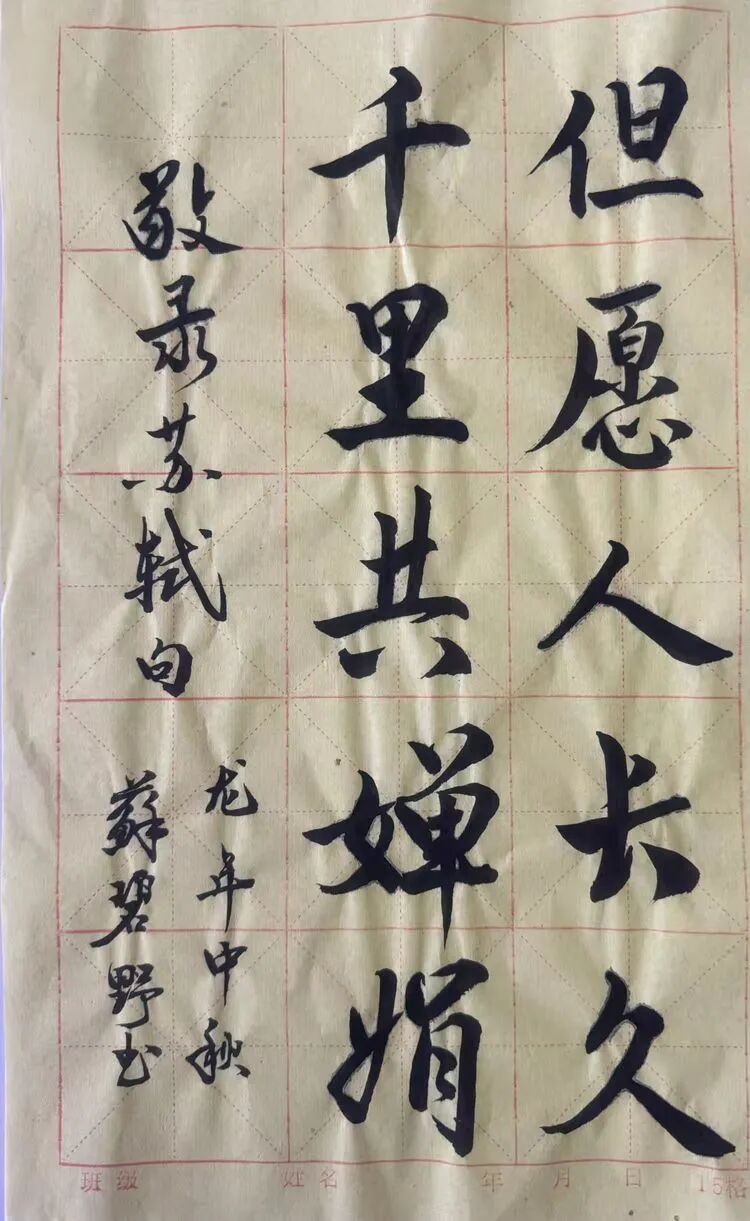 但愿人长久
千里共婵娟
敬录苏轼句
龙年中秋
蘇碧野书
班级 姓名 年 月 日 15格